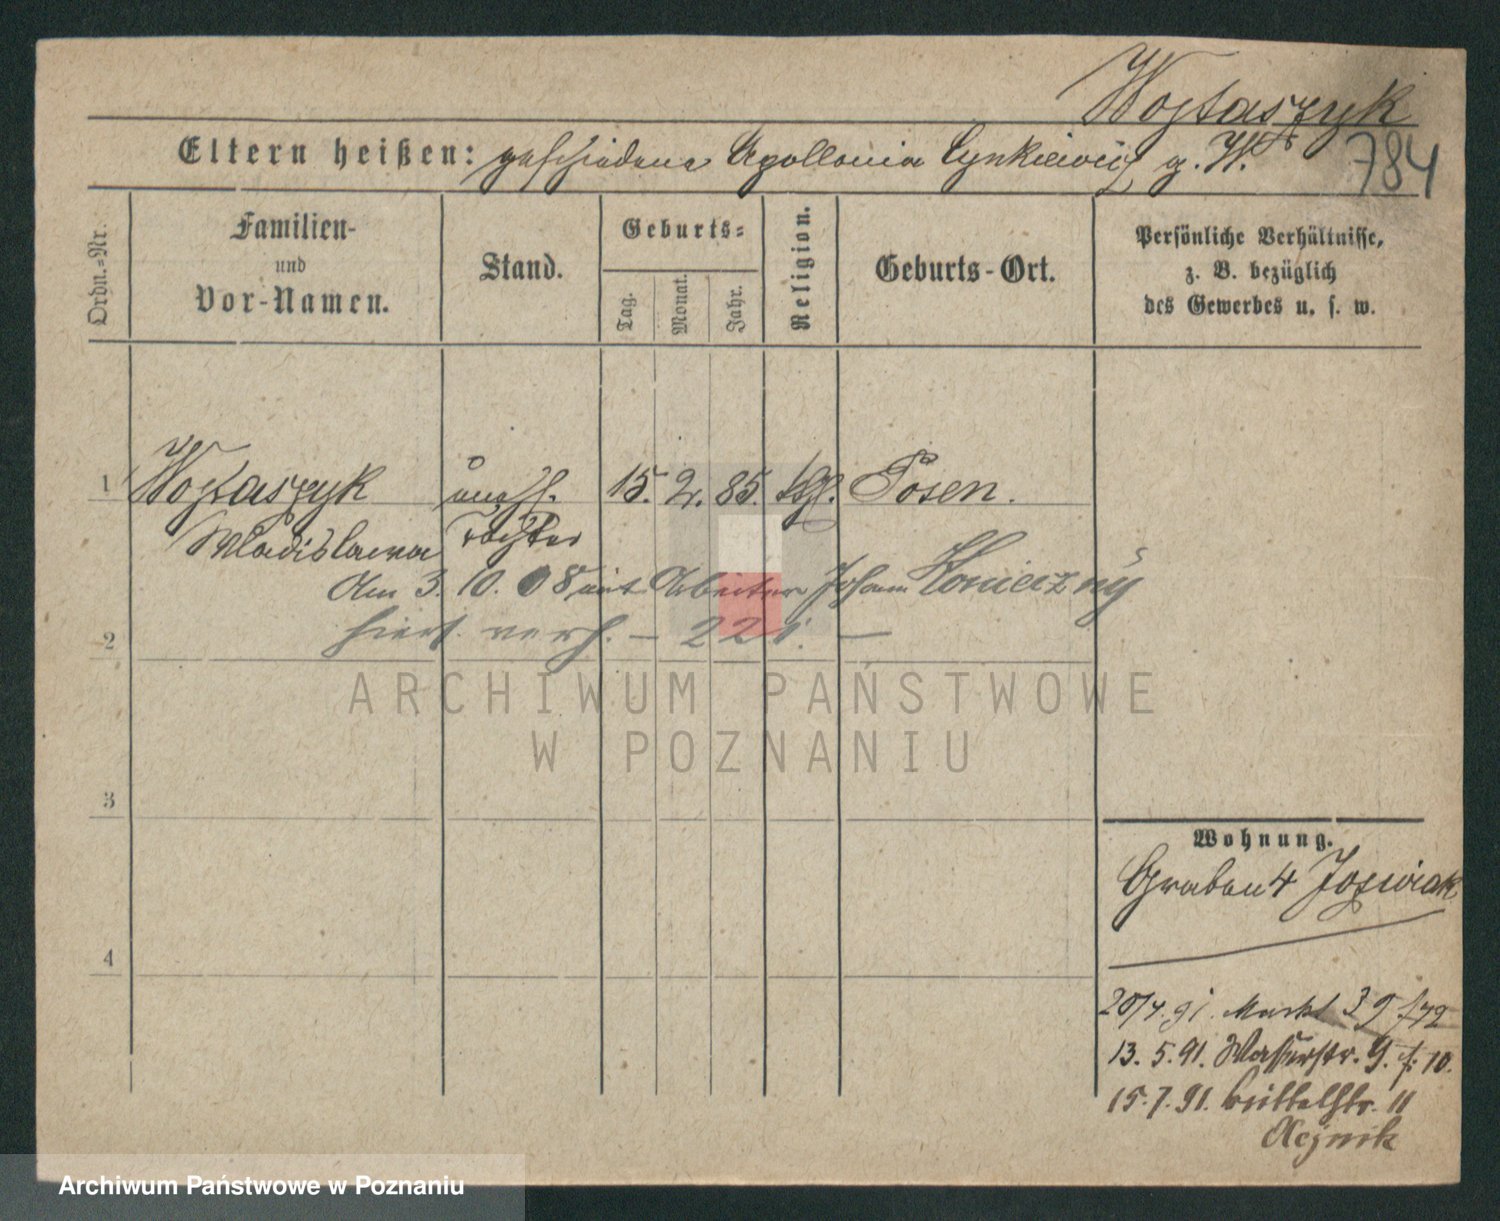 Wojtaszyk
Eltern heißen: geschiedene Apollonia Cynkiewicz g. W.
784
Ordn.-Nr.
Familien-
und
Vor-Namen.
Stand.
Geburts-
Tag.
Monat.
Jahr.
Religion.
Geburts-Ort.
Persönliche Verhältnisse,
z. B. bezüglich
des Gewerbes u. s. w.
1 Wojtaszyk 15. 2. 85. Posen.
Wladislawa Tochter
Am 3. 10. 08 mit Arbeiter Johann Konieczny
2 hier verh. — 221. —
ARCHIWUM PAŃSTWOWE
W POZNANIU
3
4
Wohnung.
Graben 4 Joswiak
20/4. 91. Markt 39
13. 5. 91. Wasserstr. 9. f. 10.
15. 7. 91. Büttelstr. 11
Archiwum Państwowe w Poznaniu